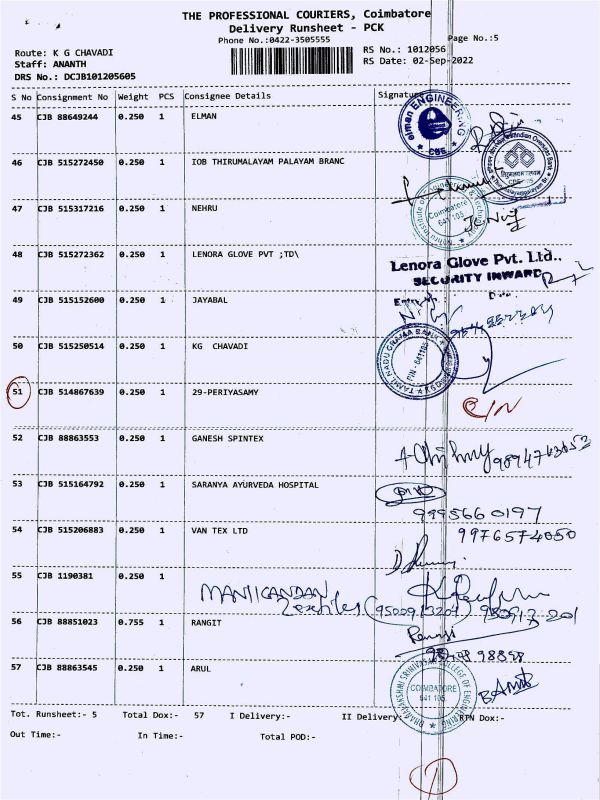 THE PROFESSIONAL COURIERS, Coimbatore
Delivery Runsheet - PCK
Phone No.:0422-3505555
Page No.:5
Route: K G CHAVADI
RS No.: 1012056
Staff: ANANTH
RS Date: 02-Sep-2022
DRS No.: DCJB101205605
S No Consignment No Weight PCS Consignee Details Signature
45 CJB 88649244 0.250 1 ELMAN
elman ENGINEERING CBE
46 CJB 515272450 0.250 1 IOB THIRUMALAYAM PALAYAM BRANC
47 CJB 515317216 0.250 1 NEHRU
Coimbatore 641 105
48 CJB 515272362 0.250 1 LENORA GLOVE PVT ;TD\
Lenora Glove Pvt. Ltd.,
SECURITY INWARD
49 CJB 515152600 0.250 1 JAYABAL
50 CJB 515250514 0.250 1 KG CHAVADI
TAMIL NADU GRAMA BANK PIN - 641105
51 CJB 514867639 0.250 1 29-PERIYASAMY
52 CJB 88863553 0.250 1 GANESH SPINTEX
53 CJB 515164792 0.250 1 SARANYA AYURVEDA HOSPITAL
9995660197
54 CJB 515206883 0.250 1 VAN TEX LTD
9976574050
55 CJB 1190381 0.250 1
MANIKANDAN
56 CJB 88851023 0.755 1 RANGIT
57 CJB 88863545 0.250 1 ARUL
DHANALAKSHMI SRINIVASAN COLLEGE OF ENGINEERING COIMBATORE 641 105
Tot. Runsheet:- 5 Total Dox:- 57 I Delivery:- II Delivery:- RTN Dox:-
Out Time:- In Time:- Total POD:-